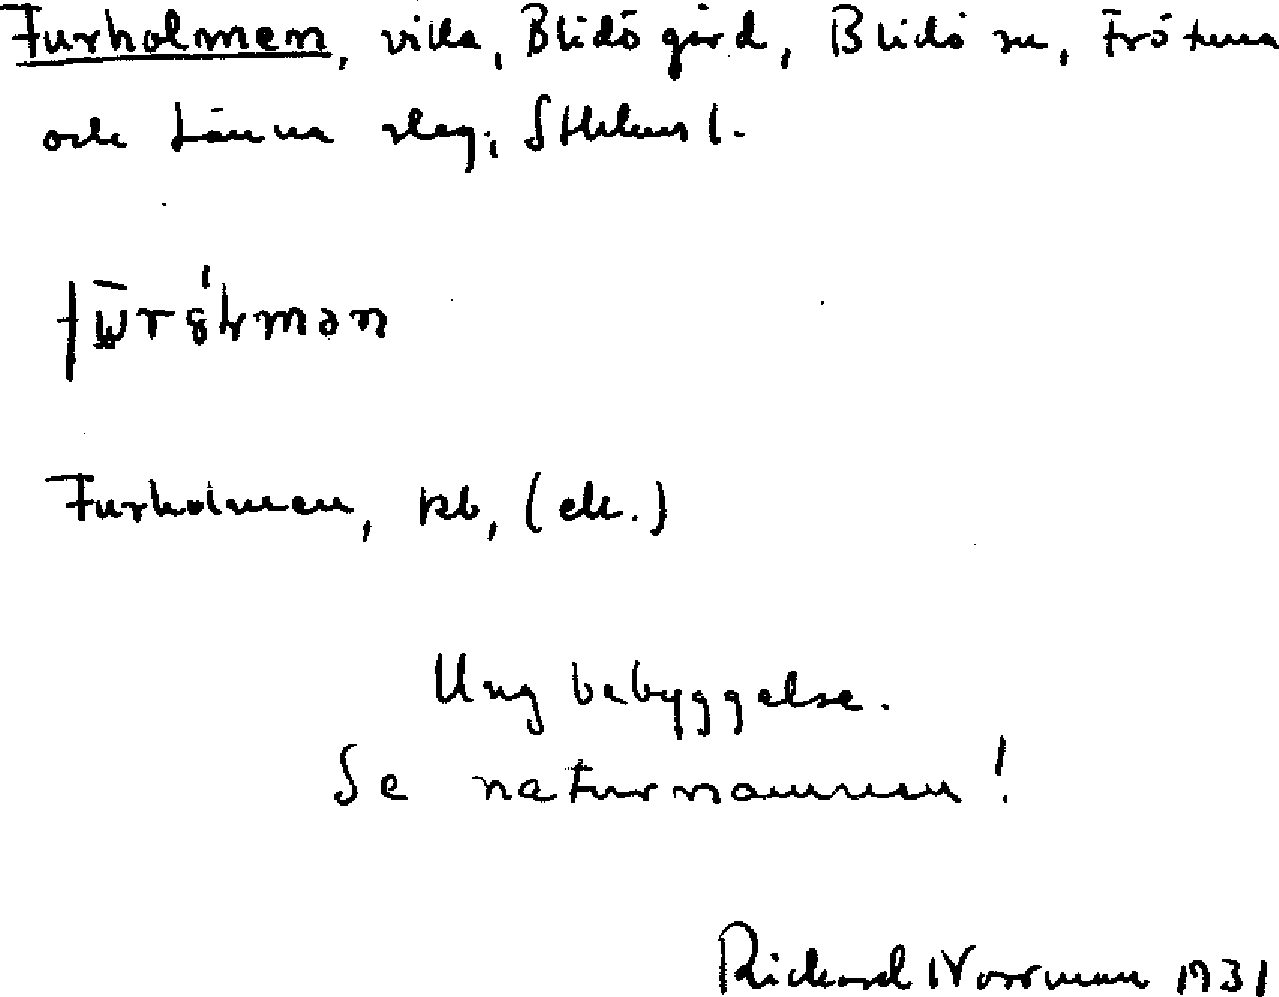 Furholmen, villa, Blidö gård, Blidö sn, Frötuna
och Länna slag, Sthlms l.
Furholmen, kb, (ek.)
Ung bebyggelse.
Se naturnamnen!
Rickard Norrman 1931